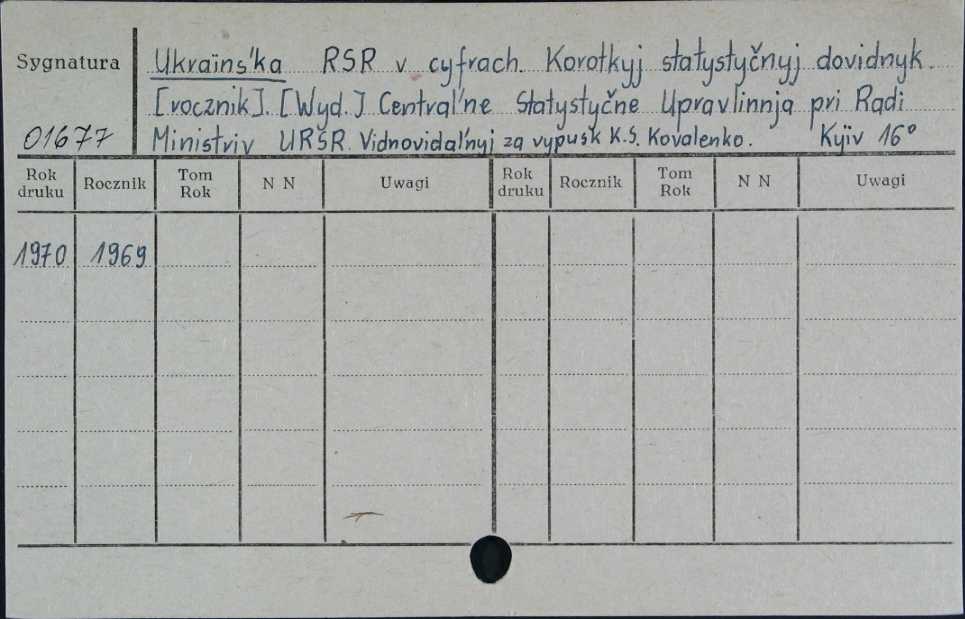 Sygnatura
01677
Ukraïns'ka RSR v cyfrach. Korotkyj statystyčnyj dovidnyk.
[rocznik]. [Wyd.] Central'ne Statystyčne Upravlinnja pri Radi
Ministriv URSR. Vidnovidal'nyj za vypusk K.S. Kovalenko. Kyïv 16°
Rok druku Rocznik Tom Rok N N Uwagi Rok druku Rocznik Tom Rok N N Uwagi
1970 1969